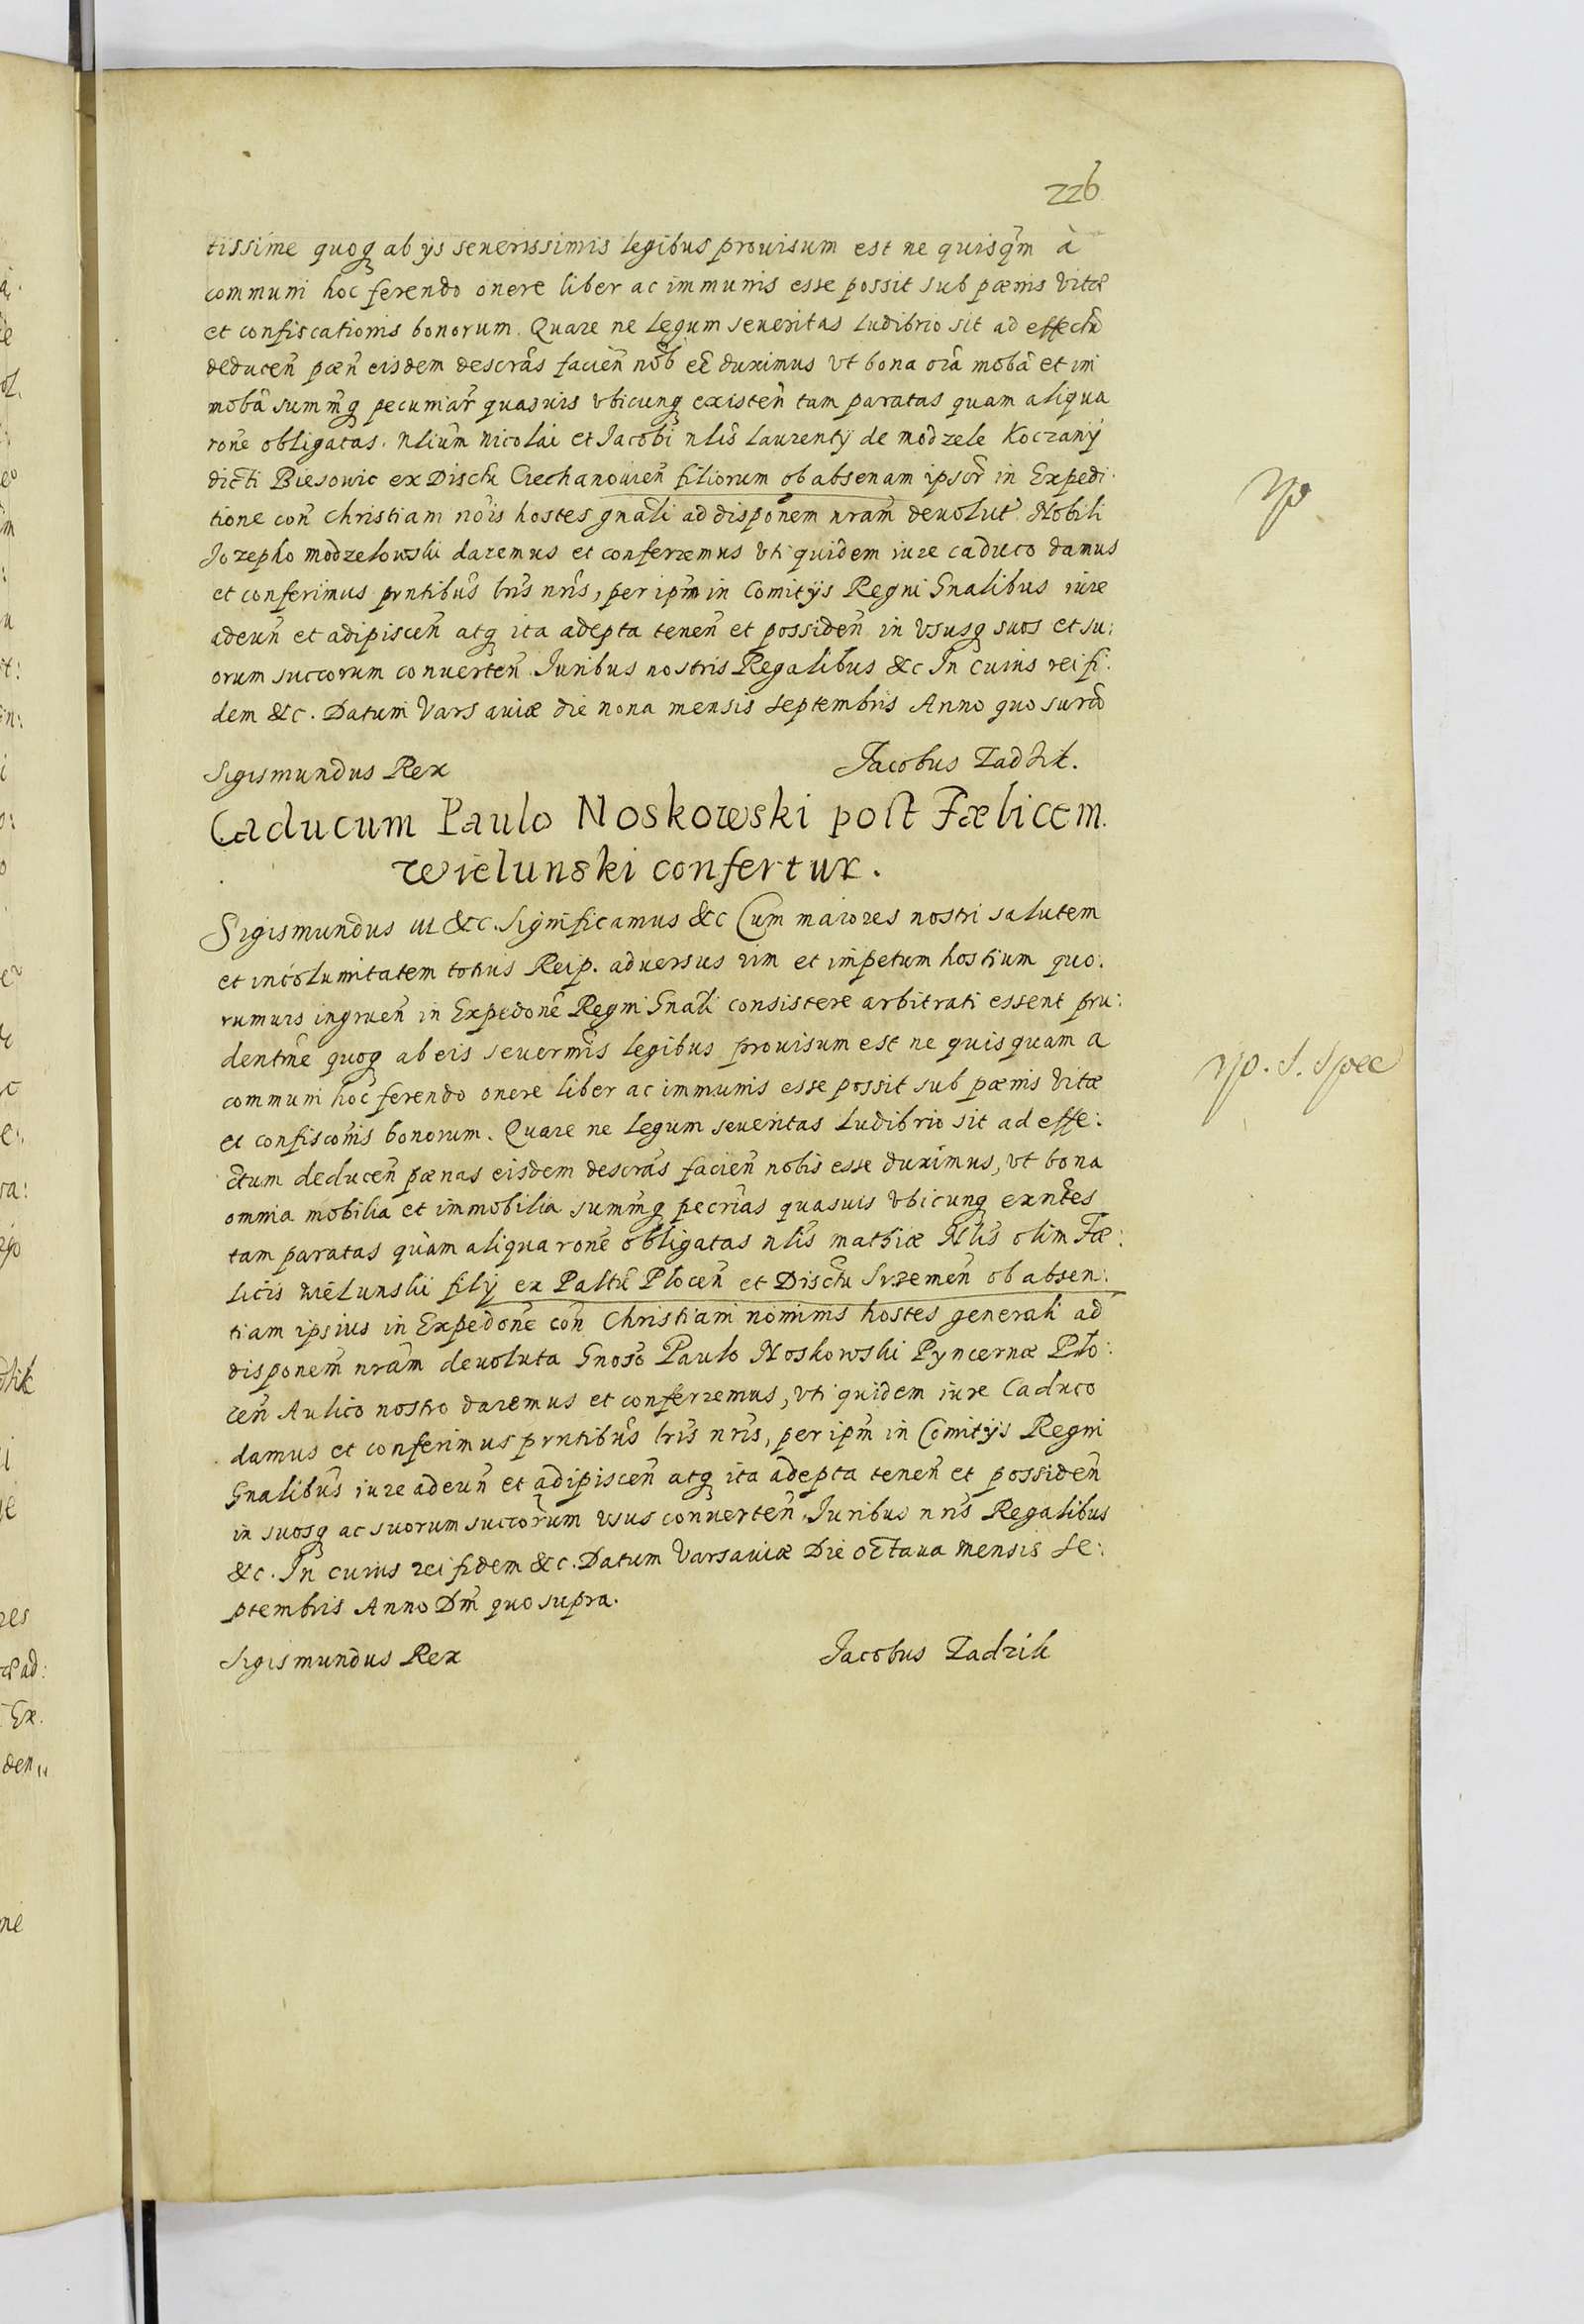 226
tissime quoq ab ijs seuerissimis legibus prouisum est ne quisq̃m à
communi hoc ferendo onere liber ac immunis esse possit sub pænis Vitæ
et confiscationis bonorum. Quare ne Legum seueritas Ludibrio sit ad effectũ
deducen̄ pæn̄ eisdem descrãs facien̄ nob̄ eẽ duximus vt bona oĩa mobã et im
mobã sum̄mq pecuniar̄ quasuis vbicunq existen̄ tam paratas quam aliqua
rone obligatas. Nlium̄ Nicolai et Jacobi nlis Laurentij de modzele Koczanij
dicti Biesowic ex Distr̄u Ciechanouien̄ filiorum ob absen̄am ipsor̄ in Expedi:
tione con̄ christiani nõis hostes gnãli ad disponem nram̄ deuolut̄ Nobili
Jozepho modzelowski daremus et conferremus vti quidem iure caduco damus
et conferimus pn̄tibus lris nris, per ip̄m in Comitijs Regni Gnalibus iure
adeun̄ et adipiscen̄ atq ita adepta tenen̄ et possiden̄ in Vsusq suos et su:
orum succorum conuerten̄ Juribus nostris Regalibus &c In cuius rei fi:
dem &c. Datum Varsauiæ die nona mensis septembris Anno quo supra
Sigismundus Rex Jacobus Zadzik.
Caducum Paulo Noskowski post Fælicem
Wielunski confertur.
Sigismundus III &c. Significamus &c Cum maiores nostri salutem
et incolumitatem totius Reip. aduersus vim et impetum hostium quo:
rumuis ingruen̄ in Expedonẽ Regni Gnãli consistere arbitrati essent pru:
dentm̄e quoq ab eis seuerm̄is legibus prouisum est ne quisquam a
communi hoc ferendo onere liber ac immunis esse possit sub pænis Vitæ
et confisconis bonorum. Quare ne Legum seueritas Ludibrio sit ad effe:
ctum deducen̄ pænas eisdem descrãs facien̄ nobis esse duximus, vt bona
omnia mobilia et immobilia sum̄mq pecrias quasuis vbicunq exn̄tes
tam paratas quam aliqua rone obligatas nlis mathiæ Nlis olim Fæ:
licis Wielunski filij ex Paltũ Plocen̄ et Distr̄u Srzemen̄ ob absen:
tiam ipsius in Expedone con̄ Christiani nominis hostes generali ad
disponem̄ nram̄ deuoluta Gnoso Paulo Noskowski Pyncernæ Plo:
cen̄ Aulico nostro daremus et conferremus, vti quidem iure Caduco
damus et conferimus pn̄tibus lris nris, per ip̄m in Comitijs Regni
Gnalibus iure adeun̄ et adipiscen̄ atq ita adepta tenen̄ et possiden̄
in suosq ac suorum succorum vsus conuerten̄. Juribus nris Regalibus
&c. In cuius rei fidem &c. Datum Varsauiæ Die octaua Mensis Se:
ptembris Anno Dm̄ quo supra.
Sigismundus Rex Jacobus Zadzik